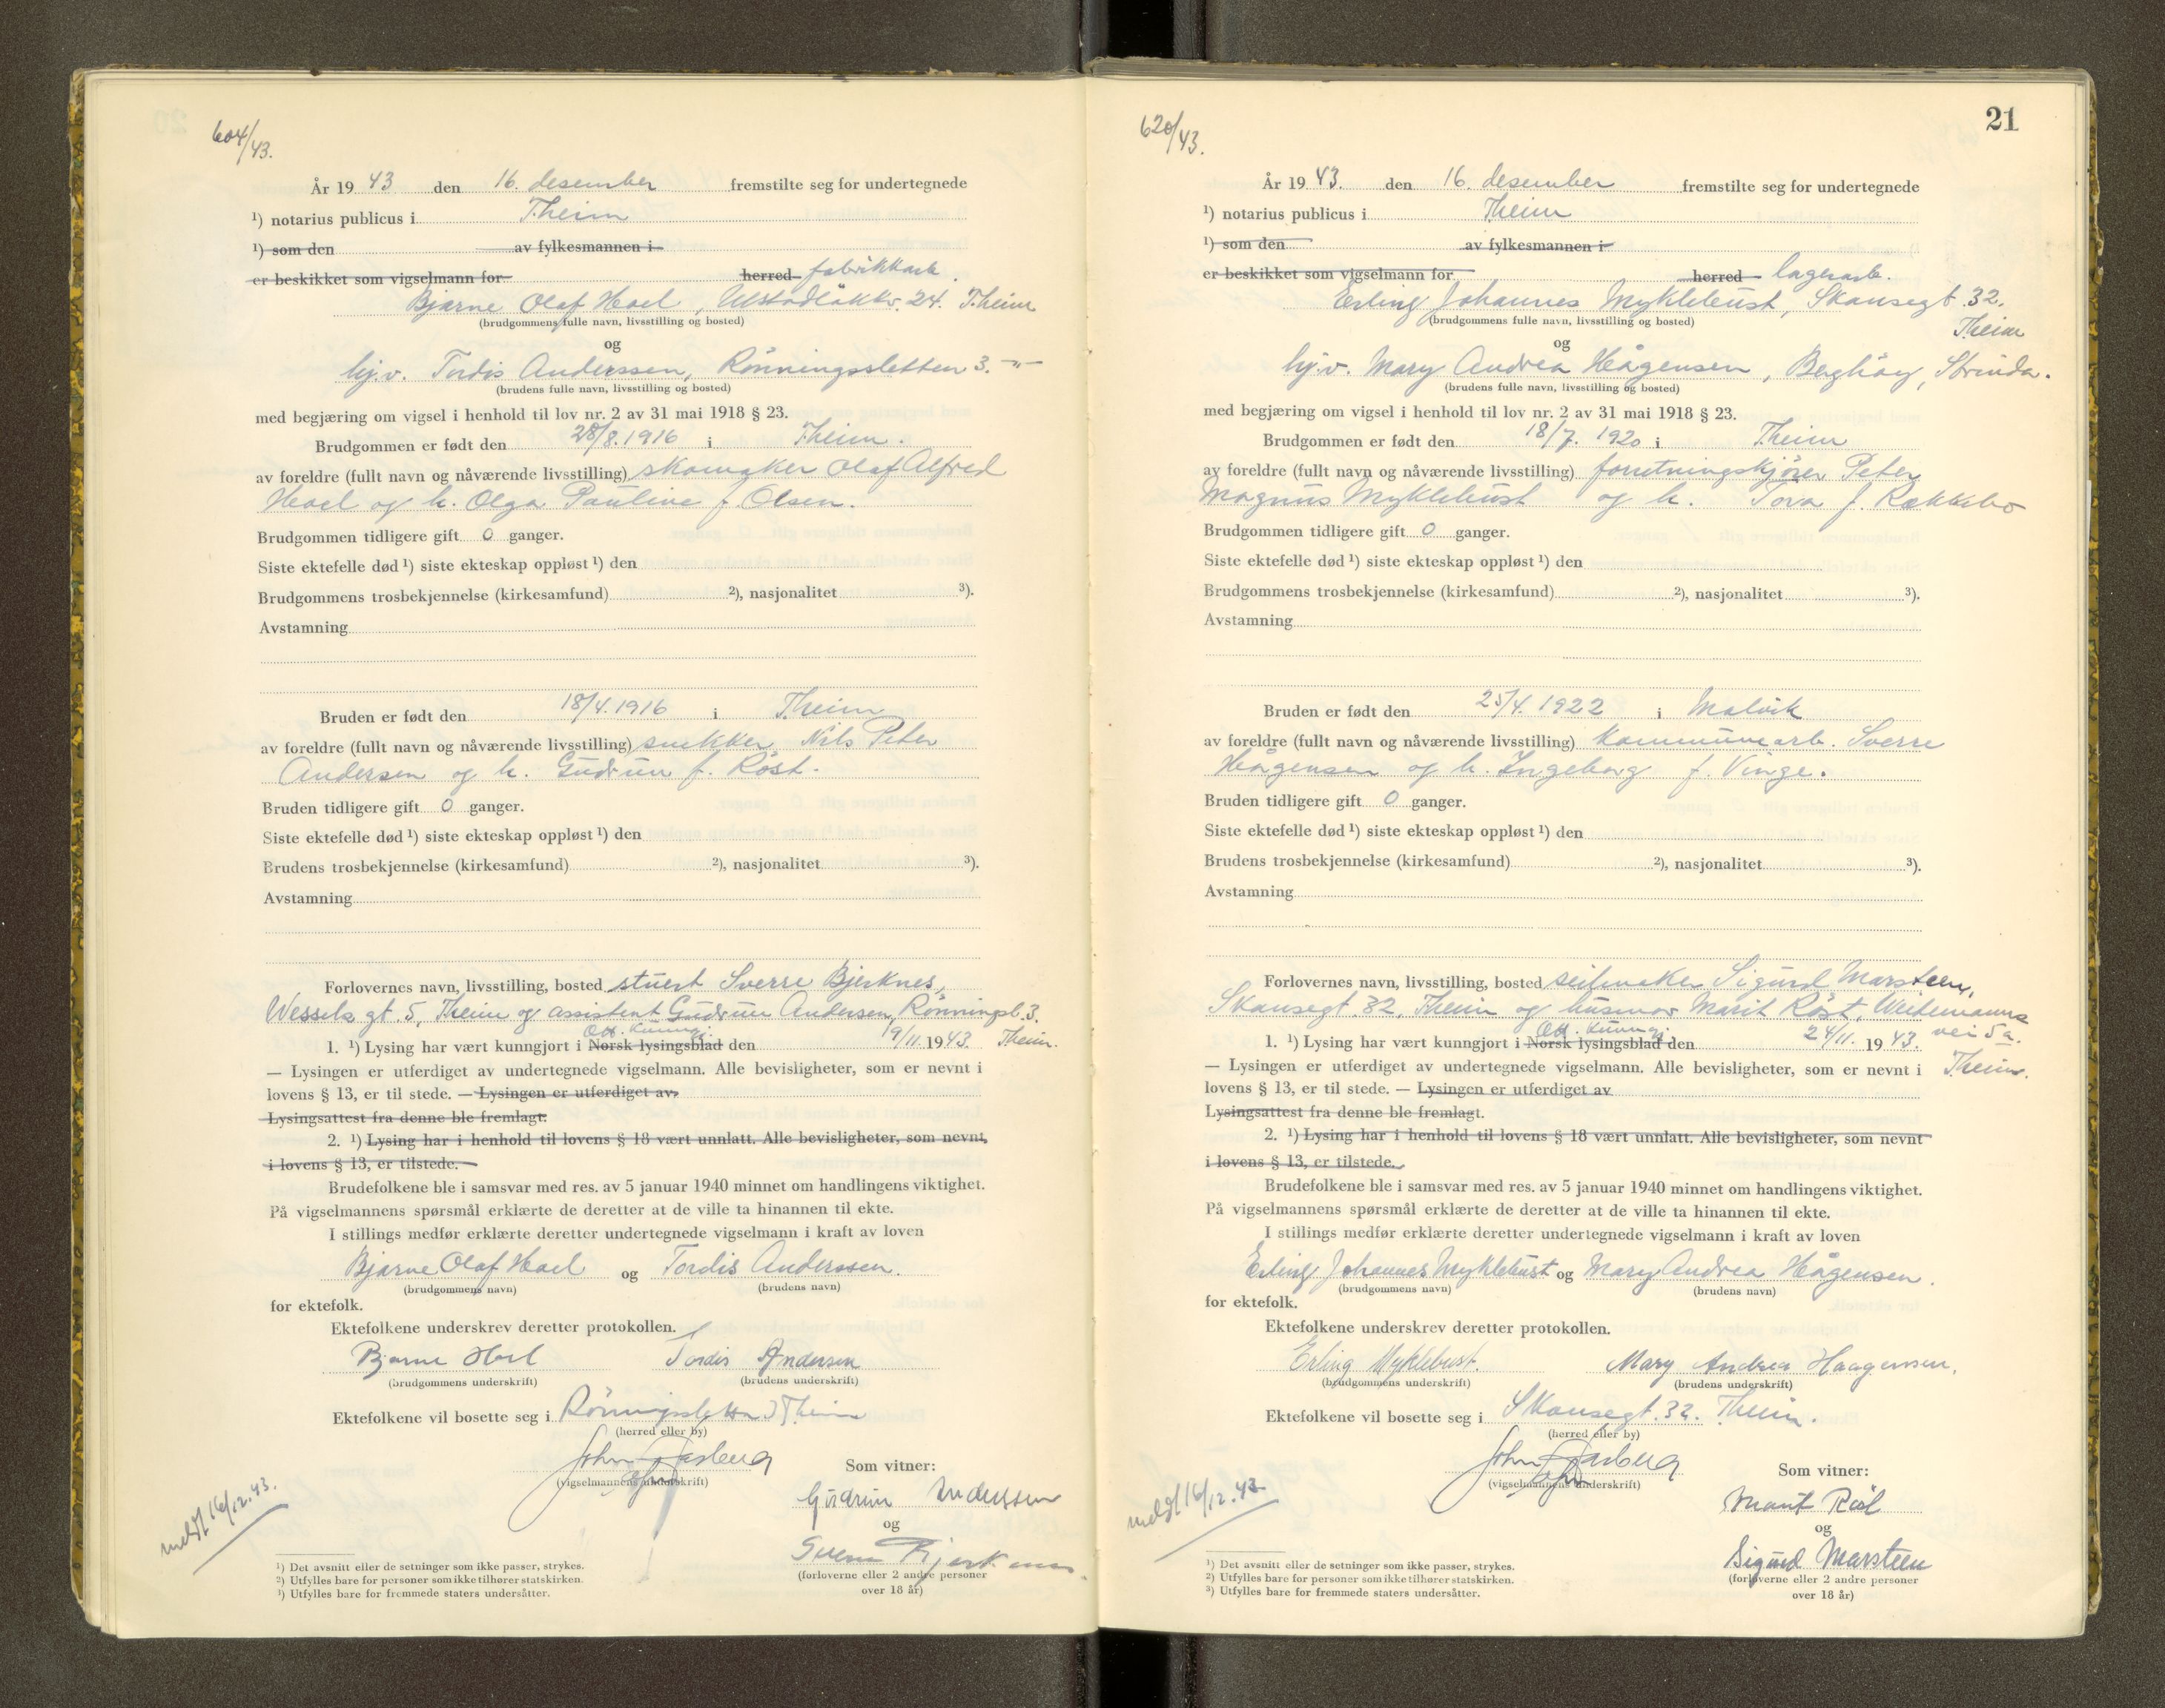 604/43.
År 1943 den 16. desember fremstilte seg for undertegnede
¹) notarius publicus i T.heim
¹) som den av fylkesmannen i
er beskikket som vigselmann for herred fabrikkarb.
Bjarne Olaf Hoel, Ulstadløkkv. 24. T.heim
(brudgommens fulle navn, livsstilling og bosted)
og
hj.v. Tordis Anderssen, Rönningsletten 3. -"-
(brudens fulle navn, livsstilling og bosted)
med begjæring om vigsel i henhold til lov nr. 2 av 31 mai 1918 § 23.
Brudgommen er født den 28/8.1916 i T.heim.
av foreldre (fullt navn og nåværende livsstilling) skomaker Olaf Alfred
Hoel og h. Olga Pauline f. Olsen.
Brudgommen tidligere gift 0 ganger.
Siste ektefelle død ¹) siste ekteskap oppløst ¹) den
Brudgommens trosbekjennelse (kirkesamfund) ²), nasjonalitet ³).
Avstamning
Bruden er født den 18/4.1916 i T.heim
av foreldre (fullt navn og nåværende livsstilling) snekker Nils Peter
Andersen og h. Gudrun f. Röst.
Bruden tidligere gift 0 ganger.
Siste ektefelle død ¹) siste ekteskap oppløst ¹) den
Brudens trosbekjennelse (kirkesamfund) ²), nasjonalitet ³).
Avstamning
Forlovernes navn, livsstilling, bosted stuert Sverre Bjerknes,
Wessels gt. 5, T.heim og assistent Gudrun Andersen, Rönningsl. 3.
Off. kunngj. T.heim.
1. ¹) Lysing har vært kunngjort i Norsk lysingsblad den 19/11. 1943.
— Lysingen er utferdiget av undertegnede vigselmann. Alle bevisligheter, som er nevnt i
lovens § 13, er til stede. — Lysingen er utferdiget av
Lysingsattest fra denne ble fremlagt.
2. ¹) Lysing har i henhold til lovens § 18 vært unnlatt. Alle bevisligheter, som nevnt
i lovens § 13, er tilstede.
Brudefolkene ble i samsvar med res. av 5 januar 1940 minnet om handlingens viktighet.
På vigselmannens spørsmål erklærte de deretter at de ville ta hinannen til ekte.
I stillings medfør erklærte deretter undertegnede vigselmann i kraft av loven
Bjarne Olaf Hoel og Tordis Anderssen.
(brudgommens navn) (brudens navn)
for ektefolk.
Ektefolkene underskrev deretter protokollen.
Bjarne Hoel Tordis Andersen
(brudgommens underskrift) (brudens underskrift)
Ektefolkene vil bosette seg i Rönningsletta 3 T.heim
(herred eller by)
John Aasberg
(vigselmannens underskrift) Som vitner:
Gudrun Anderssen
og
Sverre Bjerknes.
meldt 16/12.43.
(forloverne eller 2 andre personer
over 18 år)
¹) Det avsnitt eller de setninger som ikke passer, strykes.
²) Utfylles bare for personer som ikke tilhører statskirken.
³) Utfylles bare for fremmede staters undersåtter.
21
620/43.
År 1943. den 16. desember fremstilte seg for undertegnede
¹) notarius publicus i T.heim
¹) som den av fylkesmannen i
er beskikket som vigselmann for herred lagerarb.
Erling Johannes Myklebust, Skansegt. 32,
(brudgommens fulle navn, livsstilling og bosted) T.heim
og
hj.v. Mary Andrea Hågensen, Berghöy, Strinda.
(brudens fulle navn, livsstilling og bosted)
med begjæring om vigsel i henhold til lov nr. 2 av 31 mai 1918 § 23.
Brudgommen er født den 18/7. 1920 i T.heim
av foreldre (fullt navn og nåværende livsstilling) forretningskjörer Peter
Magnus Myklebust og h. Tora f. Rækkebo
Brudgommen tidligere gift 0 ganger.
Siste ektefelle død ¹) siste ekteskap oppløst ¹) den
Brudgommens trosbekjennelse (kirkesamfund) ²), nasjonalitet ³).
Avstamning
Bruden er født den 25/4. 1922 i Malvik
av foreldre (fullt navn og nåværende livsstilling) kommunearb. Sverre
Hågensen og h. Ingeborg f. Vinge.
Bruden tidligere gift 0 ganger.
Siste ektefelle død ¹) siste ekteskap oppløst ¹) den
Brudens trosbekjennelse (kirkesamfund) ²), nasjonalitet ³).
Avstamning
Forlovernes navn, livsstilling, bosted seilmaker Sigurd Marsteen,
Skansegt. 32, T.heim og husmor Marit Röst, Weidemanns
Off. kunngj. vei 5a.
1. ¹) Lysing har vært kunngjort i Norsk lysingsblad den 24/11. 1943.
— Lysingen er utferdiget av undertegnede vigselmann. Alle bevisligheter, som er nevnt i T.heim.
lovens § 13, er til stede. — Lysingen er utferdiget av
Lysingsattest fra denne ble fremlagt.
2. ¹) Lysing har i henhold til lovens § 18 vært unnlatt. Alle bevisligheter, som nevnt
i lovens § 13, er tilstede.
Brudefolkene ble i samsvar med res. av 5 januar 1940 minnet om handlingens viktighet.
På vigselmannens spørsmål erklærte de deretter at de ville ta hinannen til ekte.
I stillings medfør erklærte deretter undertegnede vigselmann i kraft av loven
Erling Johannes Myklebust og Mary Andrea Hågensen.
(brudgommens navn) (brudens navn)
for ektefolk.
Ektefolkene underskrev deretter protokollen.
Erling Myklebust. Mary Andrea Haagensen.
(brudgommens underskrift) (brudens underskrift)
Ektefolkene vil bosette seg i Skansegt. 32. T.heim.
(herred eller by)
John Aasberg
(vigselmannens underskrift) Som vitner:
Marit Röst
og
Sigurd Marsteen
meldt 16/12.43
(forloverne eller 2 andre personer
over 18 år)
¹) Det avsnitt eller de setninger som ikke passer, strykes.
²) Utfylles bare for personer som ikke tilhører statskirken.
³) Utfylles bare for fremmede staters undersåtter.